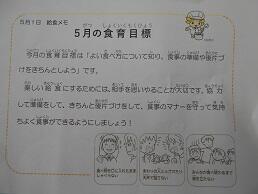 5月1日　給食メモ
5月の食育目標
今月の食育目標は「よい食べ方について知り、食事の準備や後片づ
けをきちんとしよう」です。
楽しい給食にするためには、相手を思いやることが大切です。協力
して準備をして、きちんと後片づけをして、食事のマナーを守って気持
ちよく食事ができるようにしましょう！